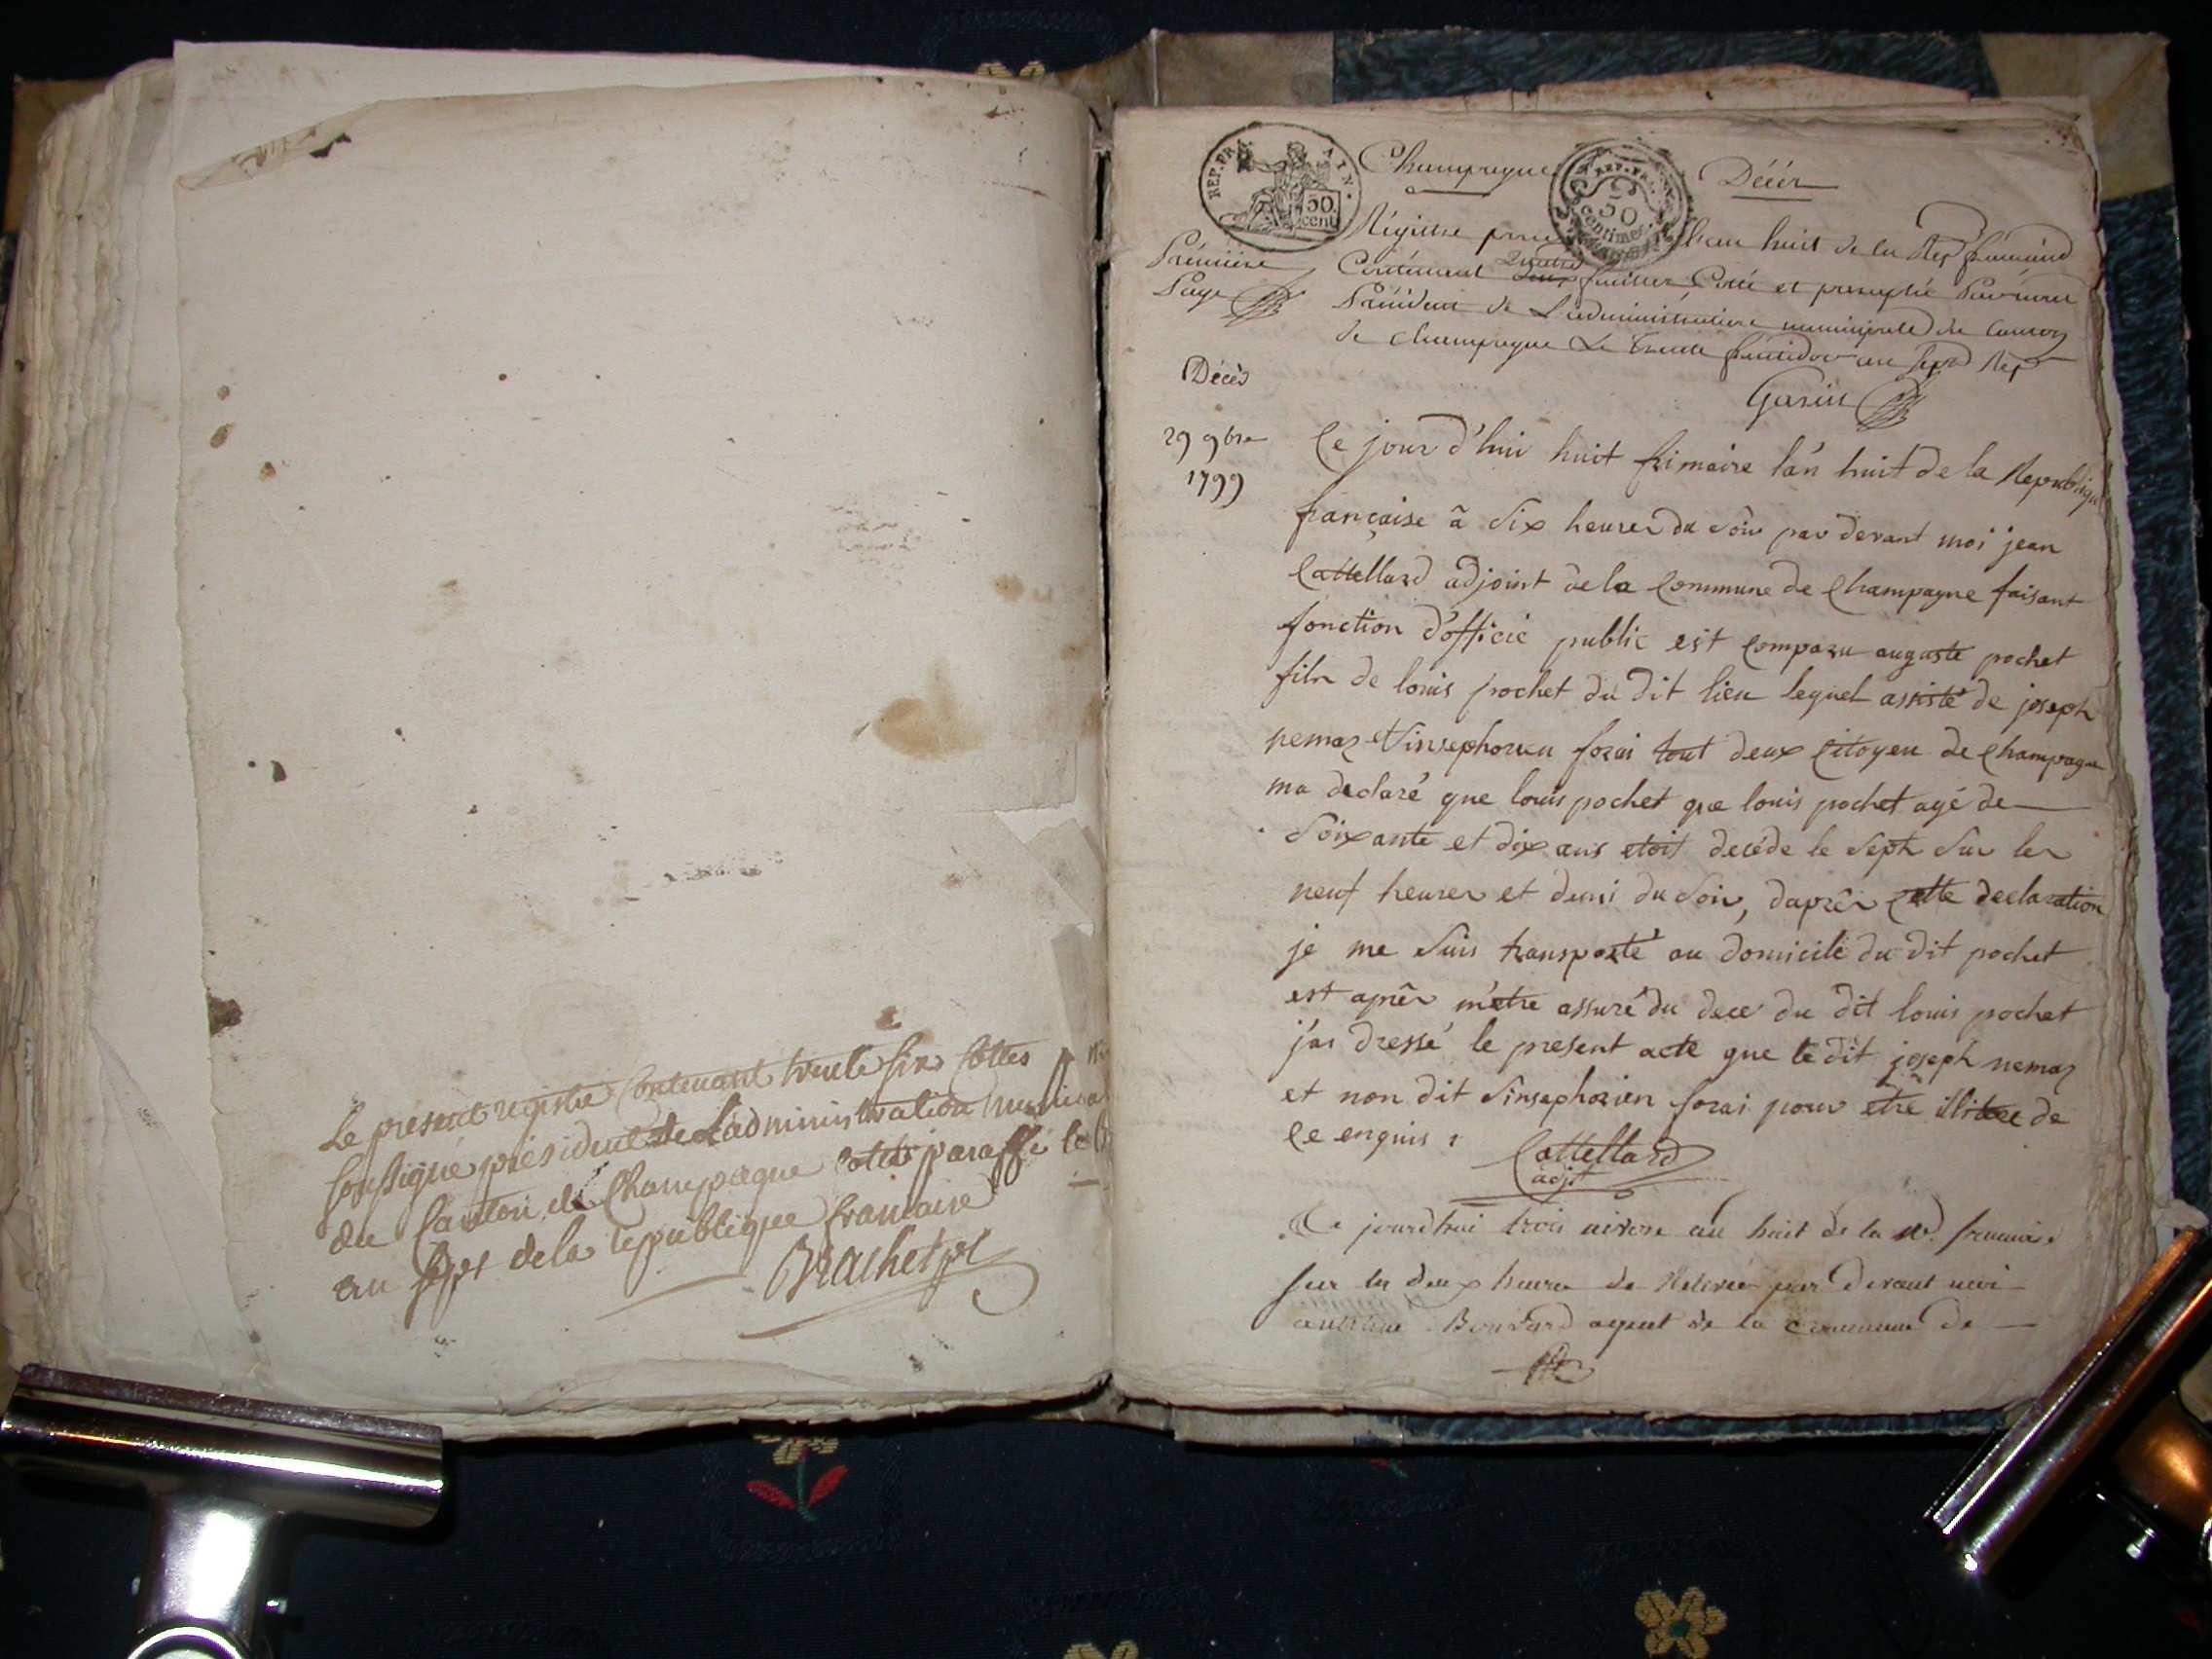 Le présent registre Contenant trente six Cottes
soussigné président de L'administration municipa
du Canton de Champagne Cotté paraffé le
au sept de la republique francaise
Brachet pt
REP. FRA. AIN. 50. cent
Champagne
REP. FRA. 50 centimes
Décès
Régistre pour l'an huit de la Rep française
Première
Page
Contenant quatre feuilles Coté et paraphé Par nous
Président de L'administration municipale du Canton
de champagne Le trente fructidor an sept Rep
Garin
Décès
29 9bre
1799
Ce jour d'hui huit frimaire l'an huit de la Republique
française à Six heures du Soir par devant moi jean
Cattellard adjoint de la Commune de Champagne faisant
fonction d'officié public est Comparu auguste pochet
fils de louis pochet du dit lieu lequel assisté de joseph
nemaz et Sinsephorien forai tout deux Citoyen de Champagne
ma declaré que louis pochet que louis pochet agé de
Soixante et dix ans etoit decéde le Sept Sur les
neuf heures et demi du Soir, daprês Cette declaration
je me Suis transporté au domicile du dit pochet
est aprês m'etre assuré du dece du dit louis pochet
j'ai dressé le present acte que le dit joseph nemaz
et non dit Sinsephorien forai pour etre illitere de
Ce enquis
Cattellard
adjt
Ce jourdhui trois nivose an huit de la francaise
sur les deux heures de Relevée par devant moi
anthelme Bonnard agent de la Commune de